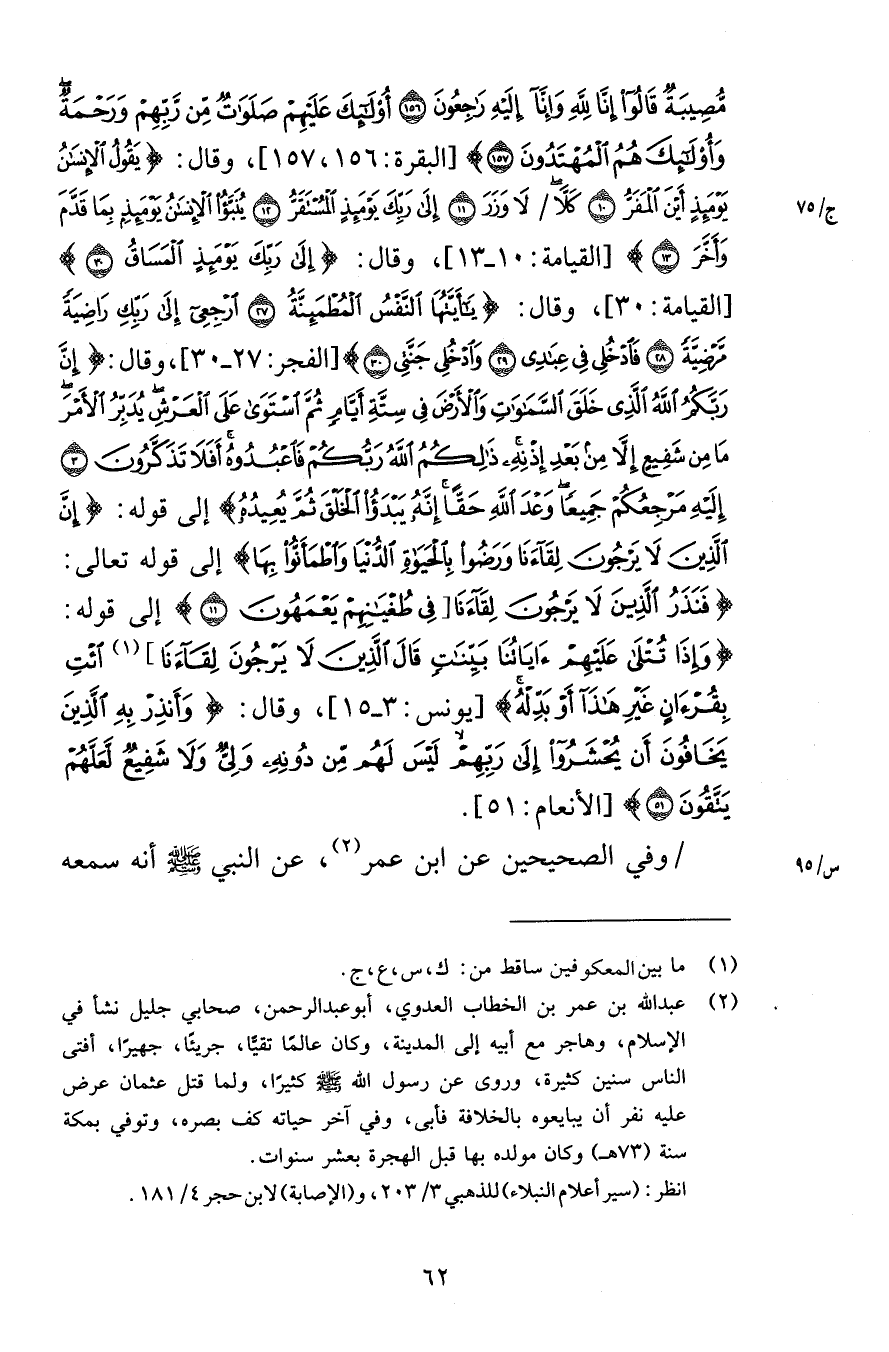 مُّصِيبَةٌ قَالُوٓا۟ إِنَّا لِلَّهِ وَإِنَّآ إِلَيْهِ رَٰجِعُونَ ﴿١٥٦﴾ أُو۟لَٰٓئِكَ عَلَيْهِمْ صَلَوَٰتٌ مِّن رَّبِّهِمْ وَرَحْمَةٌ ۖ
وَأُو۟لَٰٓئِكَ هُمُ ٱلْمُهْتَدُونَ ﴿١٥٧﴾ ﴾ [البقرة: ١٥٦، ١٥٧]، وقال: ﴿ يَقُولُ ٱلْإِنسَٰنُ
يَوْمَئِذٍ أَيْنَ ٱلْمَفَرُّ ﴿١٠﴾ كَلَّا ۖ / لَا وَزَرَ ﴿١١﴾ إِلَىٰ رَبِّكَ يَوْمَئِذٍ ٱلْمُسْتَقَرُّ ﴿١٢﴾ يُنَبَّؤُا۟ ٱلْإِنسَٰنُ يَوْمَئِذٍ بِمَا قَدَّمَ
ج/٧٥
وَأَخَّرَ ﴿١٣﴾ ﴾ [القيامة: ١٠ـ١٣]، وقال: ﴿ إِلَىٰ رَبِّكَ يَوْمَئِذٍ ٱلْمَسَاقُ ﴿٣٠﴾ ﴾
[القيامة: ٣٠]، وقال: ﴿ يَٰٓأَيَّتُهَا ٱلنَّفْسُ ٱلْمُطْمَئِنَّةُ ﴿٢٧﴾ ٱرْجِعِىٓ إِلَىٰ رَبِّكِ رَاضِيَةً
مَّرْضِيَّةً ﴿٢٨﴾ فَٱدْخُلِى فِى عِبَٰدِى ﴿٢٩﴾ وَٱدْخُلِى جَنَّتِى ﴿٣٠﴾ ﴾ [الفجر: ٢٧ـ٣٠]، وقال: ﴿ إِنَّ
رَبَّكُمُ ٱللَّهُ ٱلَّذِى خَلَقَ ٱلسَّمَٰوَٰتِ وَٱلْأَرْضَ فِى سِتَّةِ أَيَّامٍ ثُمَّ ٱسْتَوَىٰ عَلَى ٱلْعَرْشِ ۖ يُدَبِّرُ ٱلْأَمْرَ ۖ
مَا مِن شَفِيعٍ إِلَّا مِنۢ بَعْدِ إِذْنِهِۦ ۚ ذَٰلِكُمُ ٱللَّهُ رَبُّكُمْ فَٱعْبُدُوهُ ۚ أَفَلَا تَذَكَّرُونَ ﴿٣﴾
إِلَيْهِ مَرْجِعُكُمْ جَمِيعًا ۖ وَعْدَ ٱللَّهِ حَقًّا ۚ إِنَّهُۥ يَبْدَؤُا۟ ٱلْخَلْقَ ثُمَّ يُعِيدُهُۥ ﴾ إلى قوله: ﴿ إِنَّ
ٱلَّذِينَ لَا يَرْجُونَ لِقَآءَنَا وَرَضُوا۟ بِٱلْحَيَوٰةِ ٱلدُّنْيَا وَٱطْمَأَنُّوا۟ بِهَا ﴾ إلى قوله تعالى:
﴿ فَنَذَرُ ٱلَّذِينَ لَا يَرْجُونَ لِقَآءَنَا [فِى طُغْيَٰنِهِمْ يَعْمَهُونَ ﴿١١﴾ ﴾ إلى قوله:
﴿ وَإِذَا تُتْلَىٰ عَلَيْهِمْ ءَايَاتُنَا بَيِّنَٰتٍ قَالَ ٱلَّذِينَ لَا يَرْجُونَ لِقَآءَنَا ] (١) ٱئْتِ
بِقُرْءَانٍ غَيْرِ هَٰذَآ أَوْ بَدِّلْهُ ۚ ﴾ [يونس: ٣ـ١٥]، وقال: ﴿ وَأَنذِرْ بِهِ ٱلَّذِينَ
يَخَافُونَ أَن يُحْشَرُوٓا۟ إِلَىٰ رَبِّهِمْ ۙ لَيْسَ لَهُم مِّن دُونِهِۦ وَلِىٌّ وَلَا شَفِيعٌ لَّعَلَّهُمْ
يَتَّقُونَ ﴿٥١﴾ ﴾ [الأنعام: ٥١].
/ وفي الصحيحين عن ابن عمر(٢)، عن النبي ﷺ أنه سمعه
س/٩٥
(١) ما بين المعكوفين ساقط من: ك،س،ع،ج.
(٢) عبدالله بن عمر بن الخطاب العدوي، أبوعبدالرحمن، صحابي جليل نشأ في
الإسلام، وهاجر مع أبيه إلى المدينة، وكان عالمًا تقيًّا، جريئًا، جهيرًا، أفتى
الناس سنين كثيرة، وروى عن رسول الله ﷺ كثيرًا، ولما قتل عثمان عرض
عليه نفر أن يبايعوه بالخلافة فأبى، وفي آخر حياته كف بصره، وتوفي بمكة
سنة (٧٣هـ) وكان مولده بها قبل الهجرة بعشر سنوات.
انظر: (سير أعلام النبلاء) للذهبي ٣/ ٢٠٣، و(الإصابة) لابن حجر ٤/ ١٨١.
٦٢